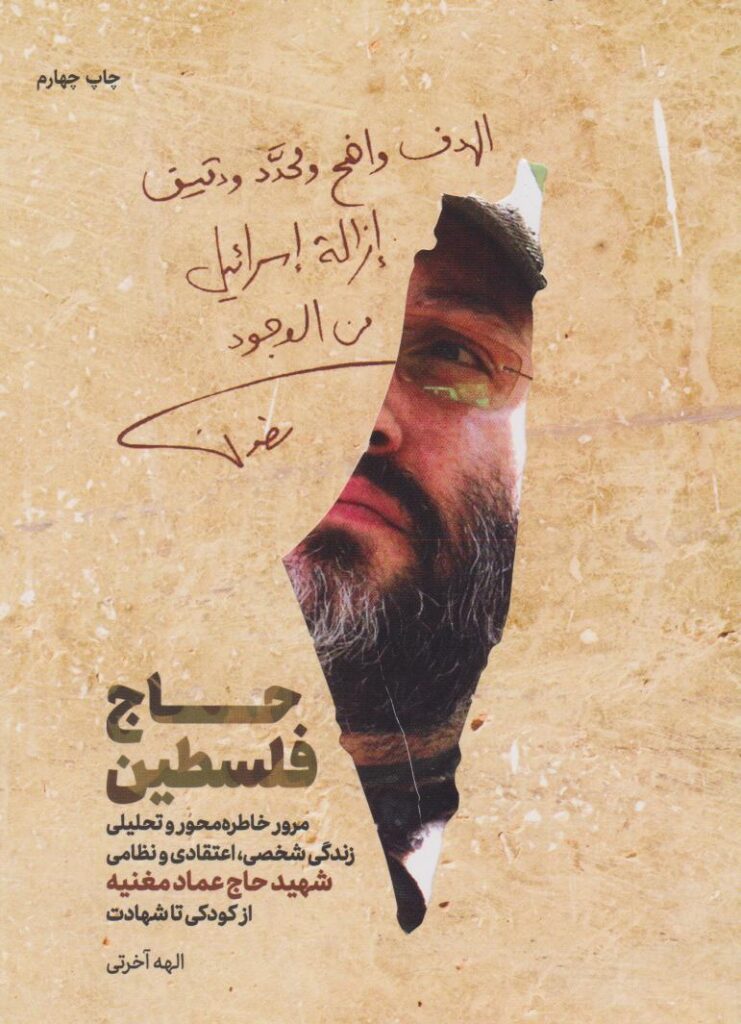 چاپ چهارم
الهدف واضح ومحدَّد ودقيق
إزالة إسرائيل
من الوجود
رضوان
حاج
فلسطین
مرور خاطره‌محور و تحلیلی
زندگی شخصی، اعتقادی و نظامی
شهید حاج عماد مغنیه
از کودکی تا شهادت
الهه آخرتی